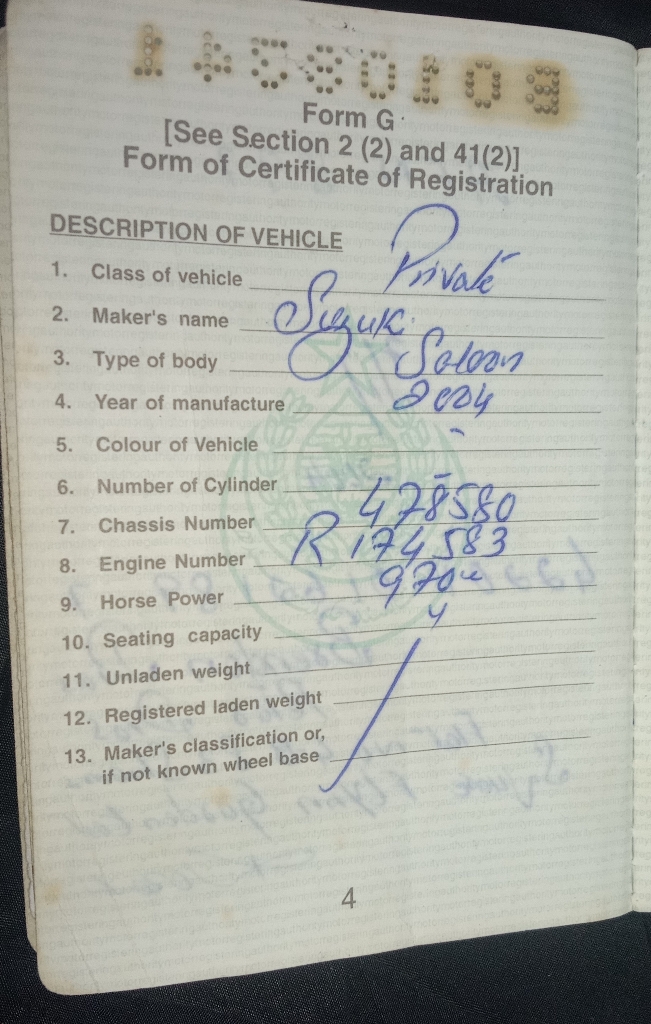 14580108
Form G
[See Section 2 (2) and 41(2)]
Form of Certificate of Registration
DESCRIPTION OF VEHICLE
1. Class of vehicle Private
2. Maker's name Suzuki
3. Type of body Saloon
4. Year of manufacture 2004
5. Colour of Vehicle -
6. Number of Cylinder -
7. Chassis Number 478580
8. Engine Number R 174583
9. Horse Power 970cc
10. Seating capacity 4
11. Unladen weight
12. Registered laden weight
13. Maker's classification or,
if not known wheel base
4